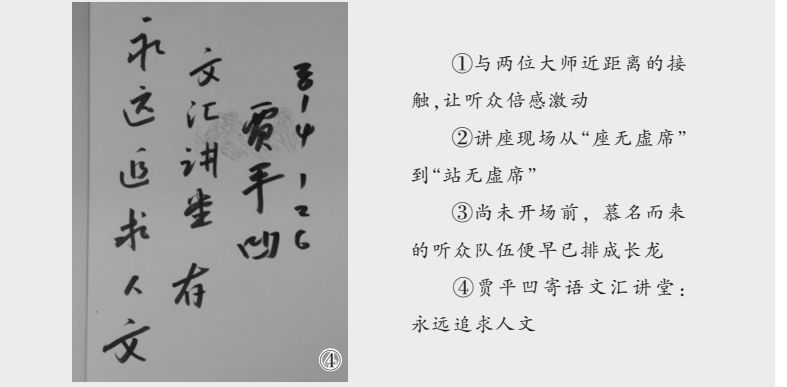 永远追求人文
文汇讲堂 存
贾平凹
④
①与两位大师近距离的接
触,让听众倍感激动
②讲座现场从“座无虚席”
到“站无虚席”
③尚未开场前，慕名而来
的听众队伍便早已排成长龙
④贾平凹寄语文汇讲堂：
永远追求人文